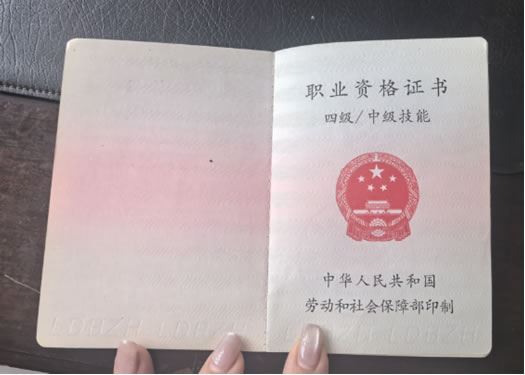 职业资格证书
四级/中级技能
中华人民共和国
劳动和社会保障部印制